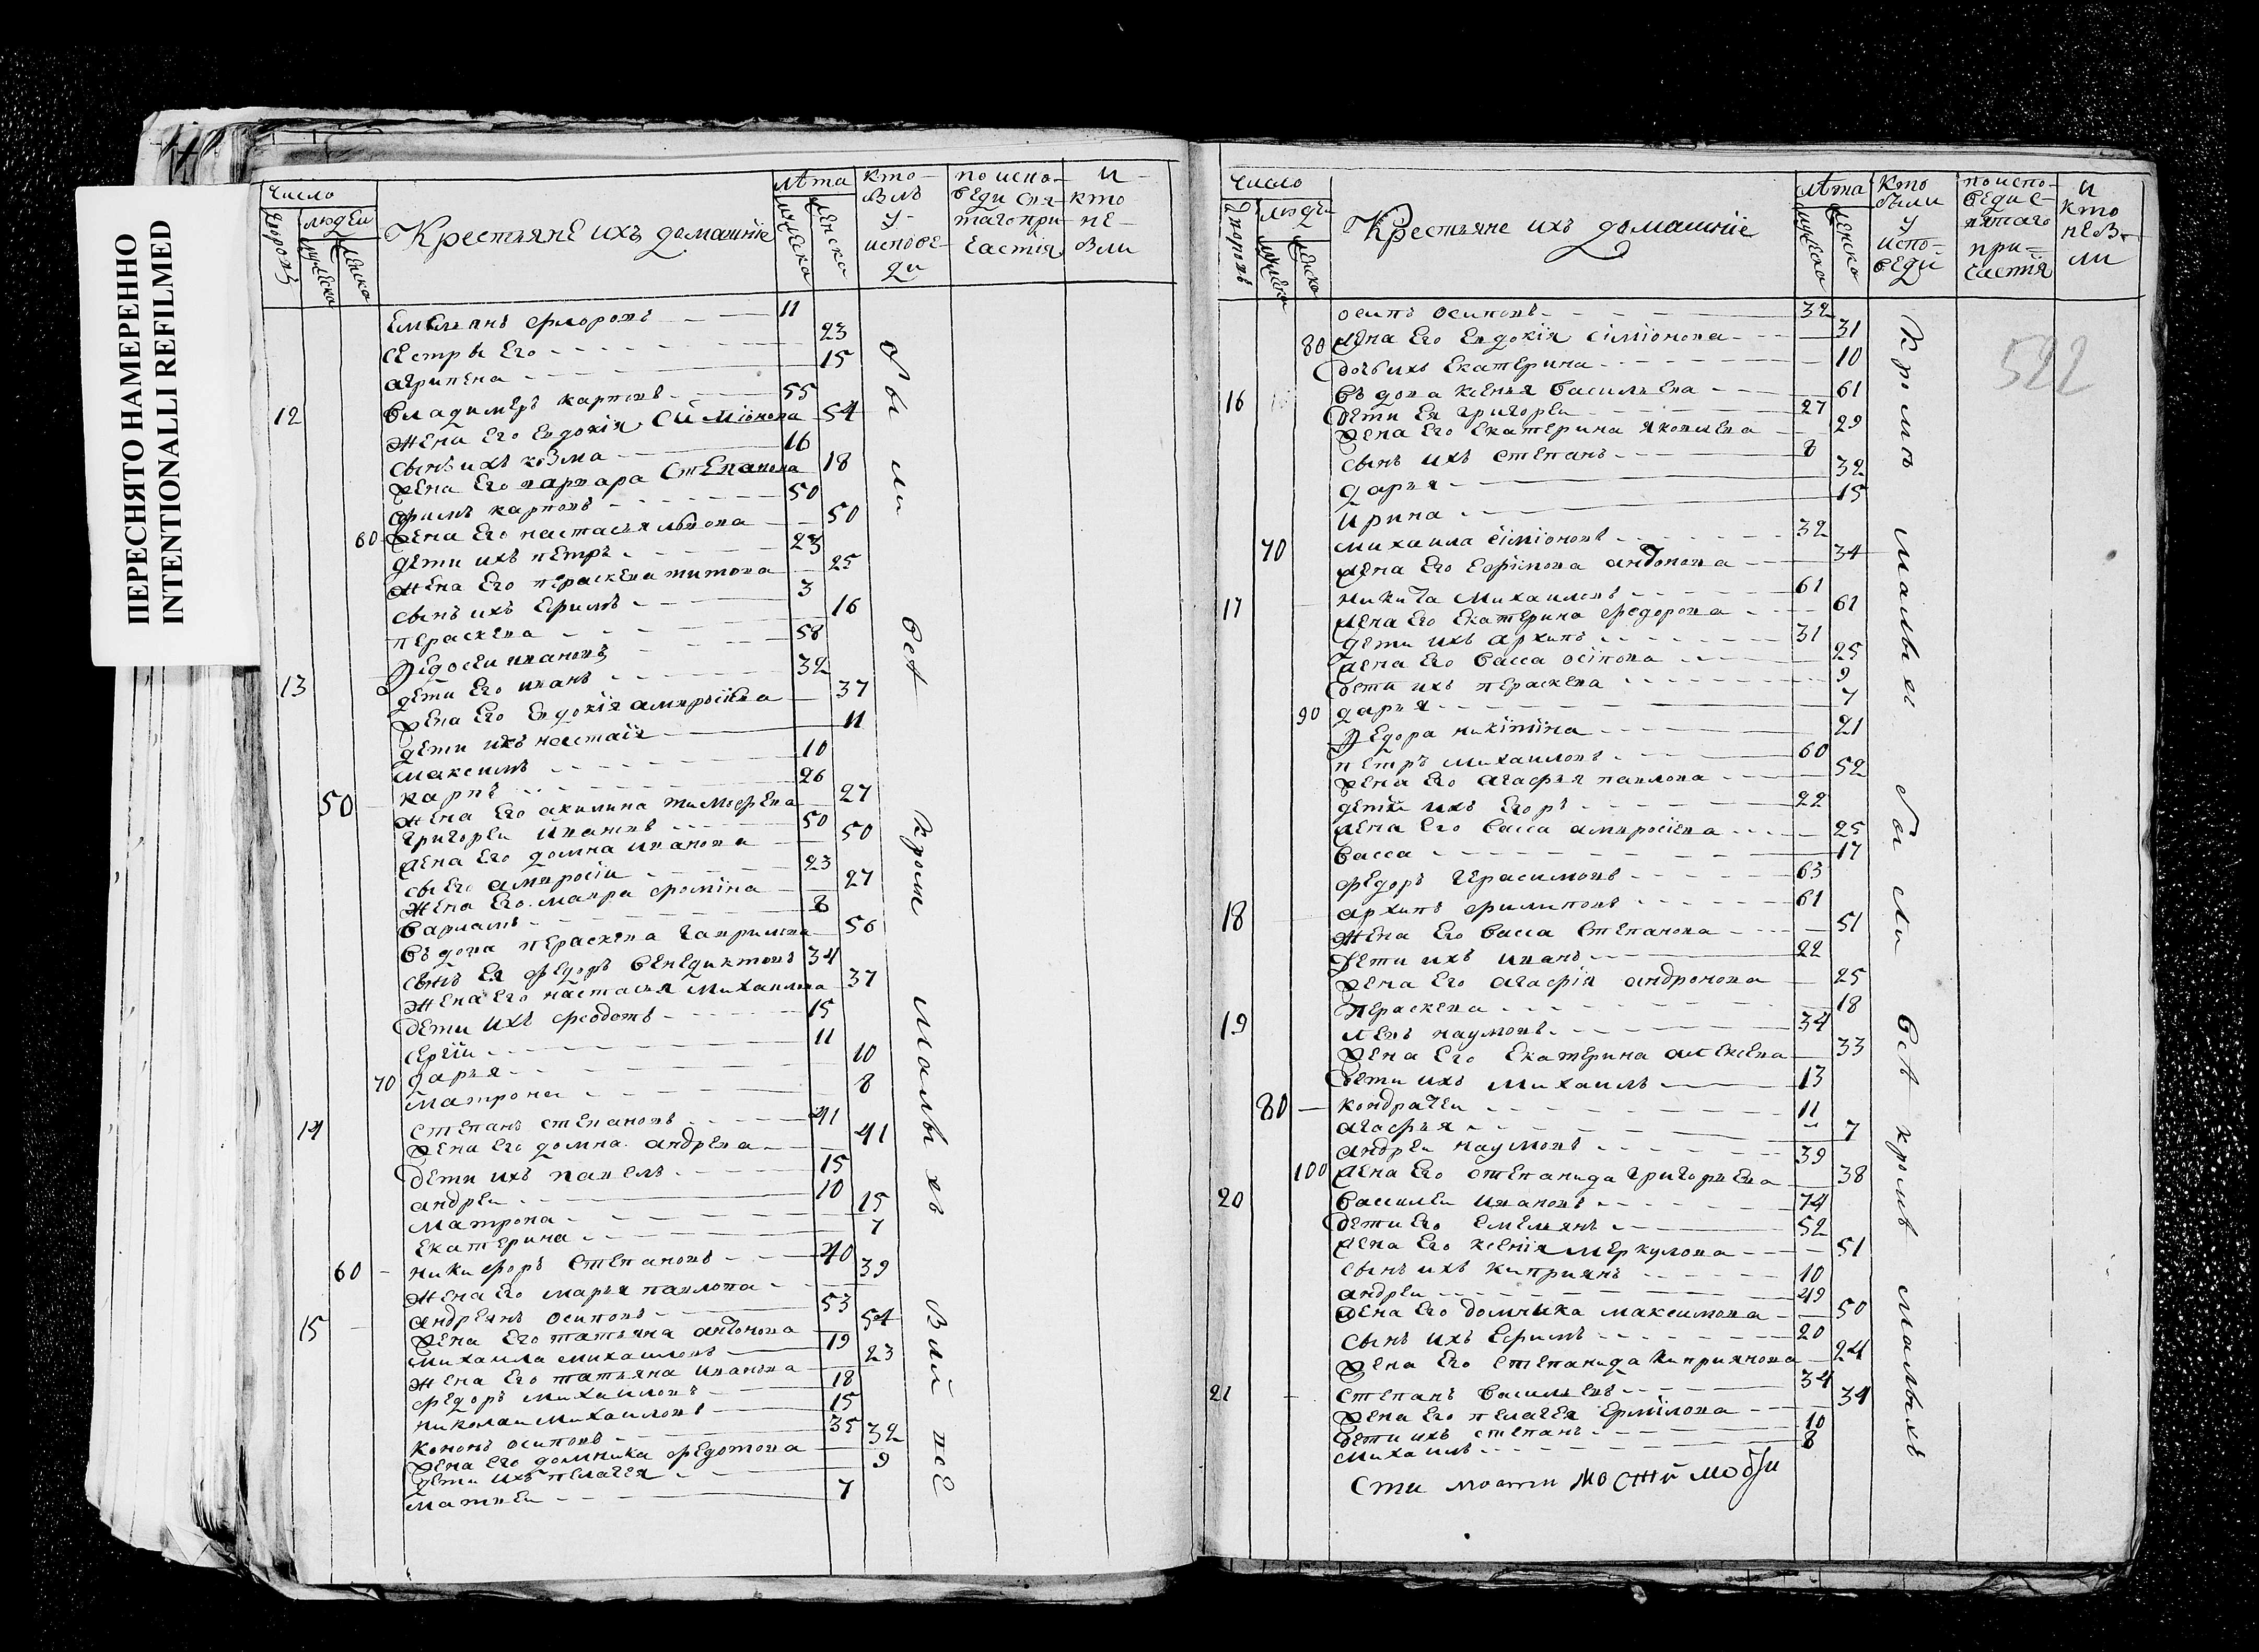 ПЕРЕСНЯТО НАМЕРЕННО
INTENTIONALLI REFILMED
число
людеи
Крестьяне ихъ домашнїе
лѣта
кто былъ у исповеди
по испоbеди святаго причастїя
и кто не были
Емельянъ флоровъ 11
сестры Его 23
агрипена 15
12 владимеръ карповъ 55
жена Его евдокія симіонова 54
сынъ ихъ козма 16
жена Его варвара степанова 18
Ефимъ карповъ 50
60 жена Его настасья львова 50
дети ихъ петръ 23
жена Его праскева титова 25
сынъ ихъ Ефимъ 3
праскева 16
13 Федосеи ивановъ 58
дети Его иванъ 32
жена Его Евдокїя амвросїева 37
дети ихъ настаїя 11
максимъ 10
50 карпъ 26
жена Его акилина тимофева 27
григореи ивановъ 50
жена Его домна иванова 50
сы Его амвросіи 23
жена Его мавра фомїна 27
варламъ 8
въдова праскева гаврилова 56
сынъ Ея федоръ венедиктовъ 34
жена Его настасья михаилова 37
дети ихъ феодотъ 15
сергїи 11
70 дарья 10
матрона 8
14 степанъ степановъ 41
жена Его домна андрева 41
дети ихъ павелъ 15
андреи 10
матрона 15
Екатерина 7
60 никифоръ степановъ 40
жена Его марья павлова 39
15 андреянъ осиповъ 53
жена Его татьяна антонова 54
михаила михаиловъ 19
жена Его татьяна иванова 23
федоръ михаиловъ 18
николаи михаиловъ 15
кононъ осиповъ 35
жена его домника федотова 32
дети ихъ пелагея 9
матвеи 7
были всѣ кромѣ малыхъ
число
людеи
Крестьяне ихъ домашнїе
лѣта
кто были у исповеди
по исповеди святаго причастїя
и кто не были
522
осипъ осиповъ 32
80 жена Его Евдокїя сімїонова 31
дочь ихъ Екатерина 10
16 въдова ксенья васильева 61
дети Ея григореи 27
жена Его Екатерина яковлева 29
сынъ ихъ степанъ 8
дарья 32
ирина 15
70 михаила сїмїоновъ 32
жена Его Ефїмова антонова 34
17 никита михаиловъ 61
жена Его Екатерина федорова 61
дети ихъ архипъ 31
жена Его васса осїпова 25
дети ихъ праскева 9
90 дарья 7
Федора никїтїна 21
петръ михаиловъ 60
жена Его агафья павлова 52
дети ихъ Егоръ 22
жена Его васса амвросїева 25
васса 17
федоръ герасимовъ 63
18 архипъ филиповъ 61
жена Его васса степанова 51
дети ихъ иванъ 22
жена Его агафїя андронова 25
праскева 18
19 левъ наумовъ 34
жена Его Екатерина алексева 33
дети ихъ михаилъ 13
80 кондратеи 11
агафья 7
андреи наумовъ 39
100 жена Его степанида григорьева 38
20 василеи ивановъ 74
дети Его Емельянъ 52
жена Его ксенїя меркулова 51
сынъ ихъ киприянъ 10
андреи 49
жена Его домника максимова 50
сынъ ихъ Ефимъ 20
жена Его степанида киприянова 24
21 степанъ васильевъ 34
жена Его пелагея Ермїлова 34
дети ихъ степанъ 10
михаилъ 8
кромѣ малыхъ были всѣ кромѣ малыхъ